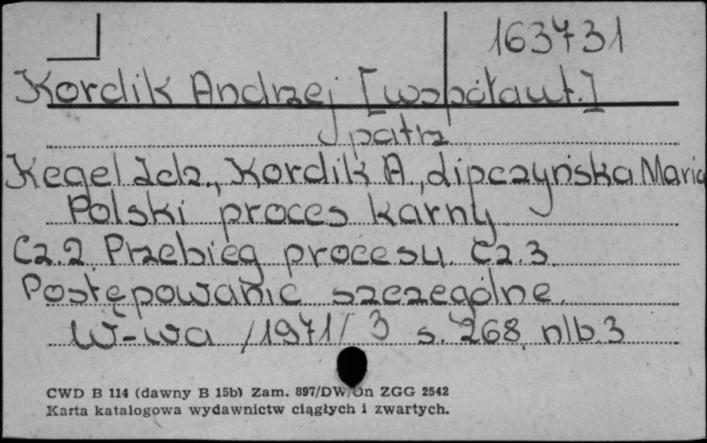 163731
Kordik Andrzej [współaut.]
patrz
Kegel Zdz., Kordik A., Lipczyńska Maria
Polski proces karny
Cz.2 Przebieg procesu. Cz.3
Postępowanie szczególne.
W-wa /1971/ 3 s. 268, nlb.3
CWD B 114 (dawny B 15b) Zam. 897/DW/On ZGG 2542
Karta katalogowa wydawnictw ciągłych i zwartych.